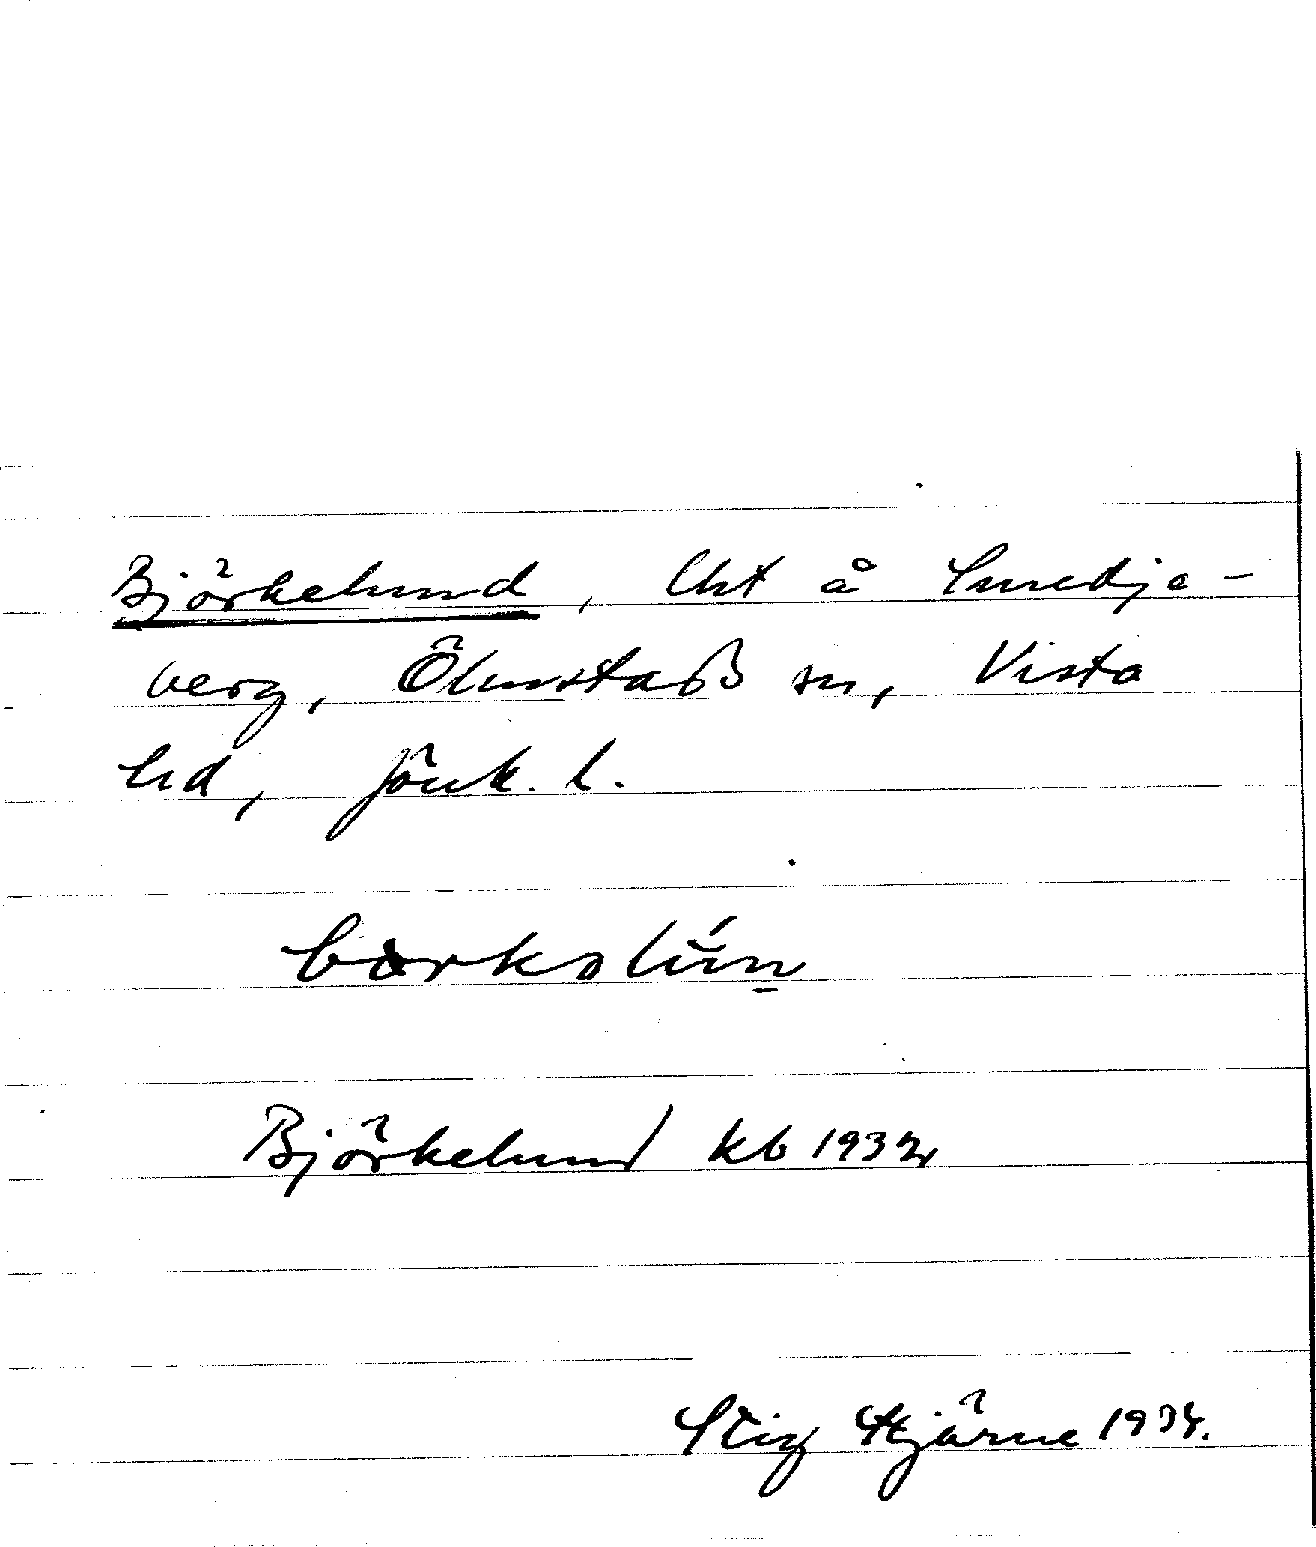 Björkelund, lht å Smedje-
berg, Ölmstads sn, Vista
hd, Jönk. l.
Björkelund kb 1932
Stig Hjärne 1934.